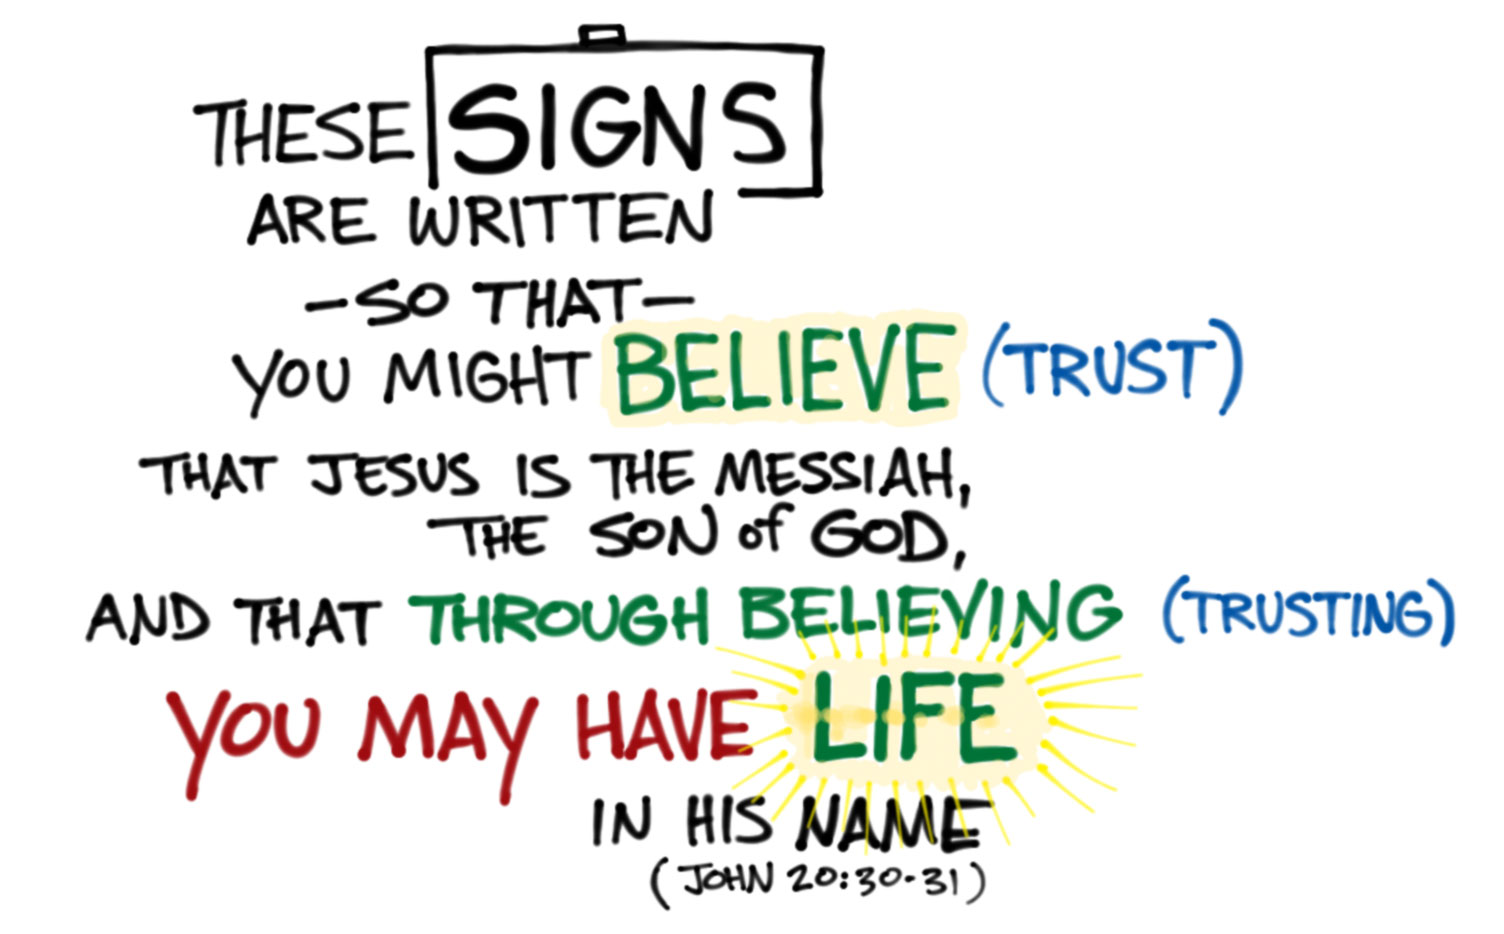 THESE SIGNS
ARE WRITTEN
-SO THAT-
YOU MIGHT BELIEVE (TRUST)
THAT JESUS IS THE MESSIAH,
THE SON of GOD,
AND THAT THROUGH BELIEVING (TRUSTING)
YOU MAY HAVE LIFE
IN HIS NAME
(JOHN 20:30-31)